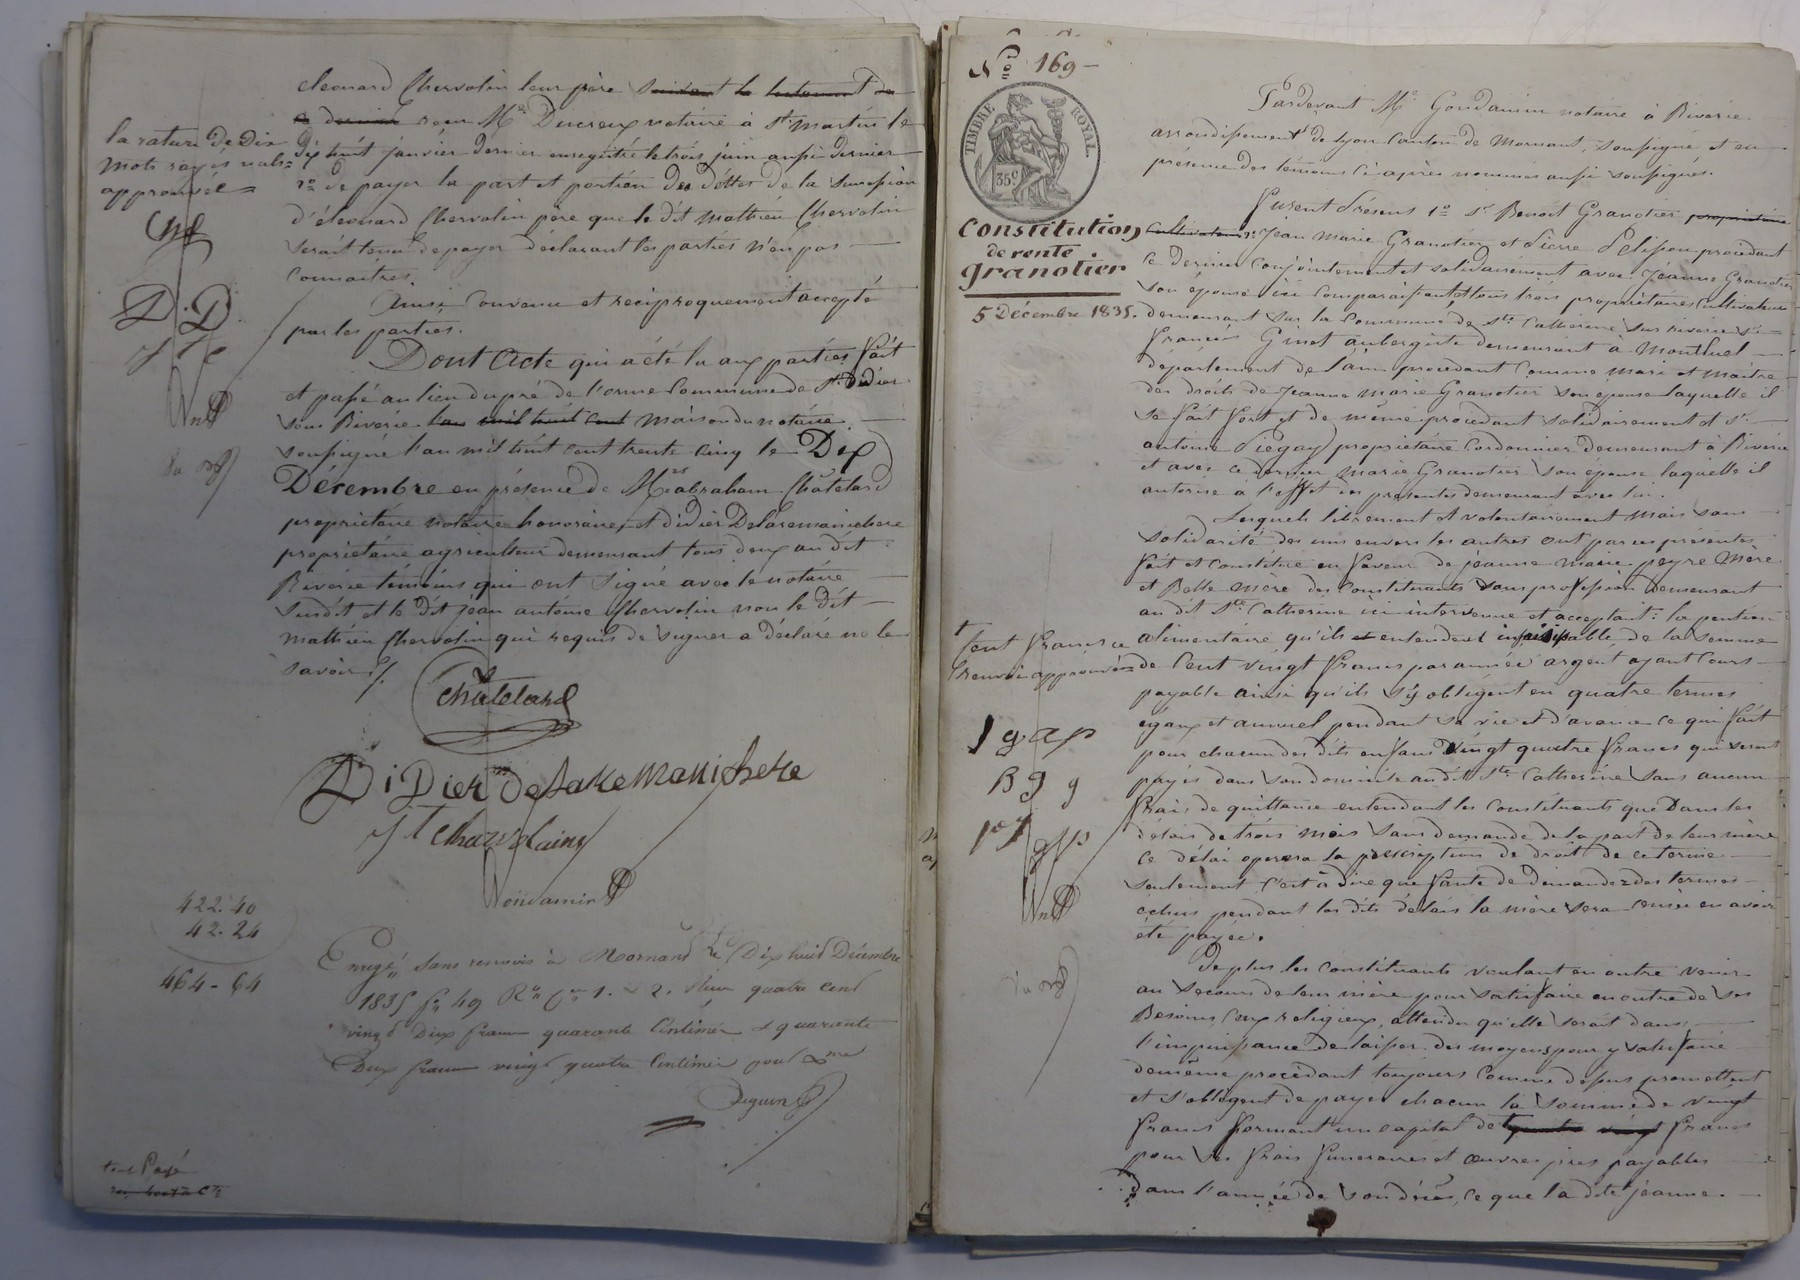 éléonard Chervolin leur père suivant le testament de
ce dernier reçu Me Ducreux notaire à St Martin le
dix huit janvier dernier enregistré le trois juin aussi dernier
2o de payer la part et portion des déttes de la succession
d'éléonard Chervolin père que le dit mathieu Chervolin
serait tenu de payer déclarant les parties n'en pas
connaitre.
Ainsi convenu et reciproquement accepté
par les parties.
Dont Acte qui a été lu aux parties fait
et passé au lieu du pré de l'orme commune de St Didier
sous Riverie l'an mil huit cent maison du notaire
soussigné l'an mil huit cent trente cinq le Dix
Décembre en présence de Mrs abraham Châtelard
propriétaire notaire honoraire, et didier Delaremanichere
propriétaire agriculteur demeurant tous deux au dit
Riverie témoins qui ont signé avec le notaire
susdit et le dit jean antoine Chervolin non le dit
mathieu Chervolin qui requis de signer a déclaré ne le
savoir /.
la rature de Dix
mots rayés nuls
approuvée
D. D
Châtelard
DiDier Delaremanichere
Gondamin
422.40
42.24
464-64
Enregé sans renvois à Mornant le Dix huit Décembre
1835 fo 49 Ro Ces 1. & 2. Reçu quatre cent
vingt Deux francs quarante Centimes & quarante
Deux francs vingt quatre Centimes pour Dixme
Deguin
tout Payé
No 169
TIMBRE ROYAL.
35c
Constitution
de rente
granotier
5 Décembre 1835.
Pardevant Me Gondamin notaire à Riverie
arrondissement de Lyon canton de Mornant, soussigné et en
présence des témoins ci après nommés aussi soussignés.
Furent Présens 1o Sr Benoit Granotier propriétaire
cultivateur 2o Jean Marie Granotier et Pierre Pelisson procédant
ce dernier conjointement et solidairement avec Jeanne Granotier
son épouse ici comparaissant tous trois propriétaires Cultivateurs
demeurant sur la commune de Ste Catherine sur Riverie Sr
François Ginot aubergiste demeurant à Montluel
département de l'ain procédant comme mari et maitre
des droits de Jeanne marie Granotier son épouse laquelle il
se fait fort et de même procédant solidairement et Sr
antoine Piégay propriétaire Cordonnier demeurant à Riverie
et avec ce dernier marie Granotier son épouse laquelle il
autorise à l'effet des présentes demeurant avec lui.
Lesquels librement et volontairement mais sans
solidarité des uns envers les autres ont par ces présentes
fait et constitué en faveur de jeanne marie peyre mère
et Belle mère des constituants sans profession demeurant
au dit Ste Catherine ici intervenue et acceptant: la pention
alimentaire qu'ils entendent insaisissable de la somme
de Cent vingt francs par année argent ayant Cours
payable ainsi qu'ils s'y obligent en quatre termes
égaux et annuel pendant sa vie et d'avance ce qui fait
pour chacun des dits enfans vingt quatre francs qui seront
payés dans son domicile au dit Ste Catherine sans aucun
frais de quittance entendant les Constituants que dans les
délais de trois mois sans demande de la part de leur mère
ce délai operera la prescription de droit de ce terme
seulement c'est à dire que faute de demander des termes
échus pendant les dits délais la mère sera censée en avoir
été payée.
De plus les constituants voulant en outre venir
au secours de leur mère pour satisfaire en outre de ses
Besoins ceux religieux, attendu qu'elle serait dans
l'impuissance de laisser des moyens pour y satisfaire
demême procédant toujours comme dessus promettent
et s'obligent de payer chacun la somme de vingt
francs formant un capital de quatre vingt francs
pour ses frais funeraires et œuvres pies payables
dans l'année de son décès, ce que la dite jeanne
cent francs ce
renvoi approuvé
J g a P
B g g